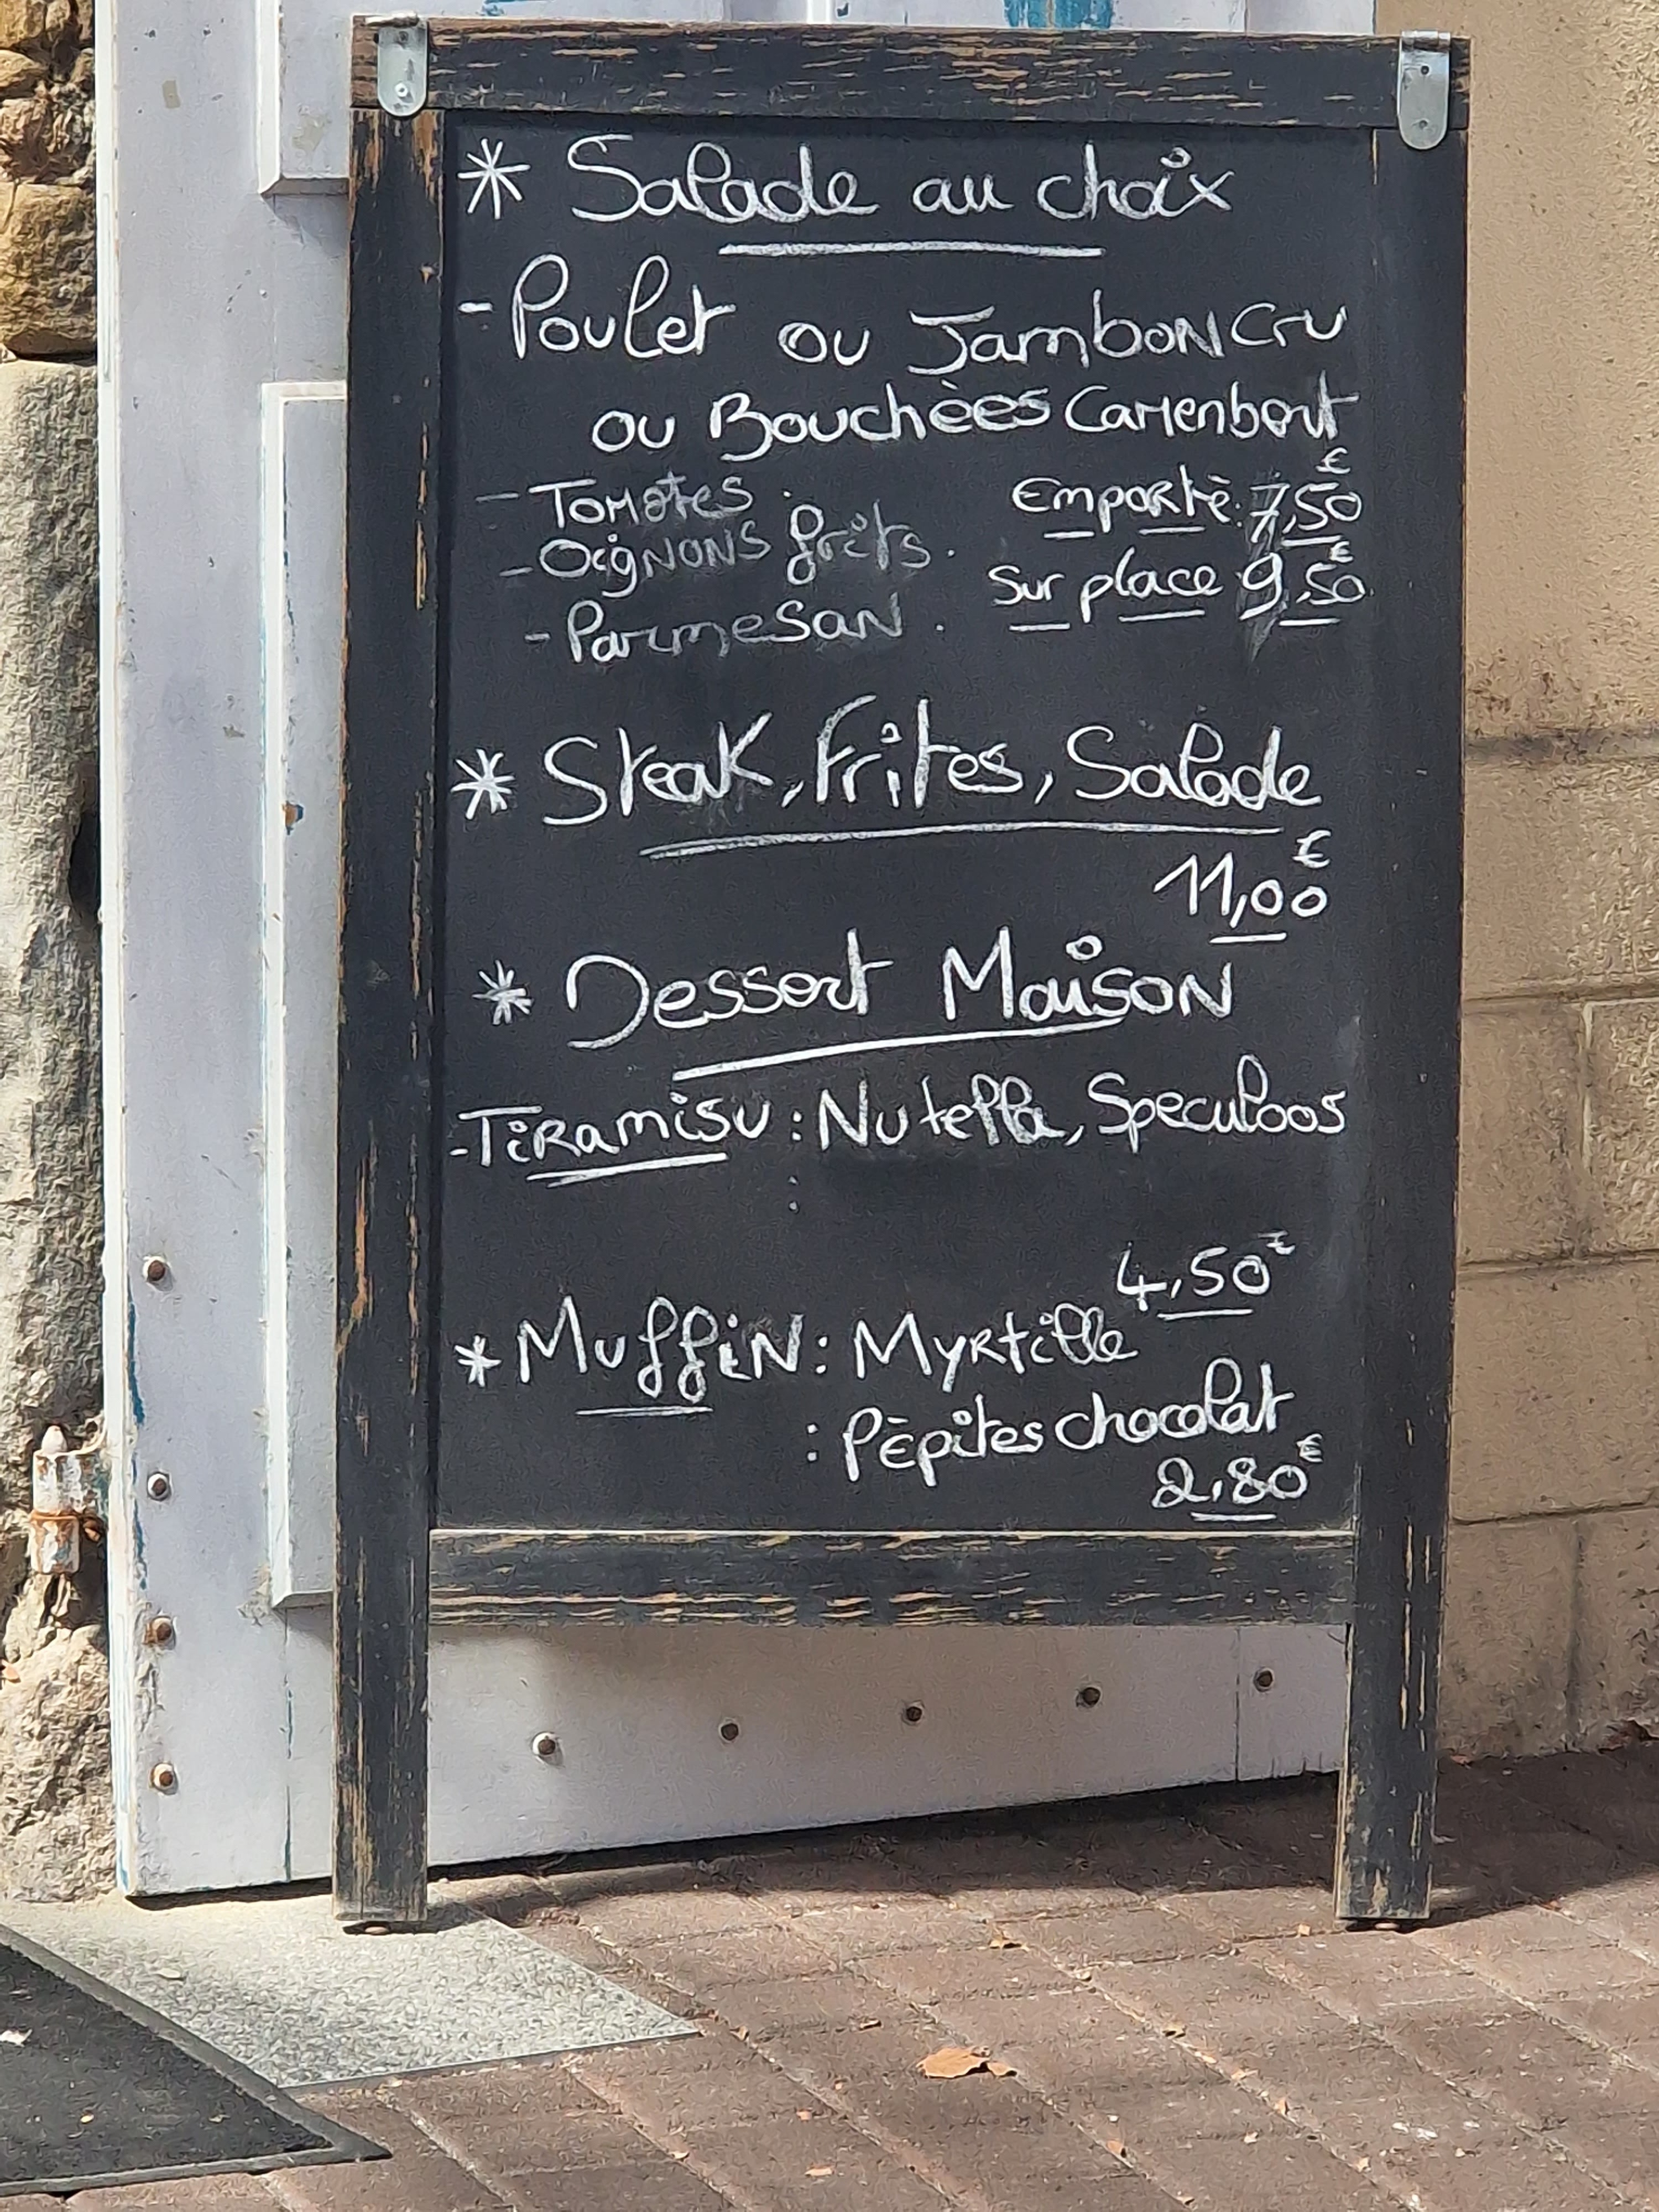 * Salade au choix
- Poulet ou Jambon Cru
ou Bouchèes Camenbert
- Tomates . Emportè : 7,50€
- Oignons frits . Sur place 9,50€
- Parmesan .
* Steak, Frites, Salade
11,00€
* Dessert Maison
- Tiramisu : Nutella, Speculoos
:
4,50€
* Muffin : Myrtille
: Pèpites chocolat
2,80€